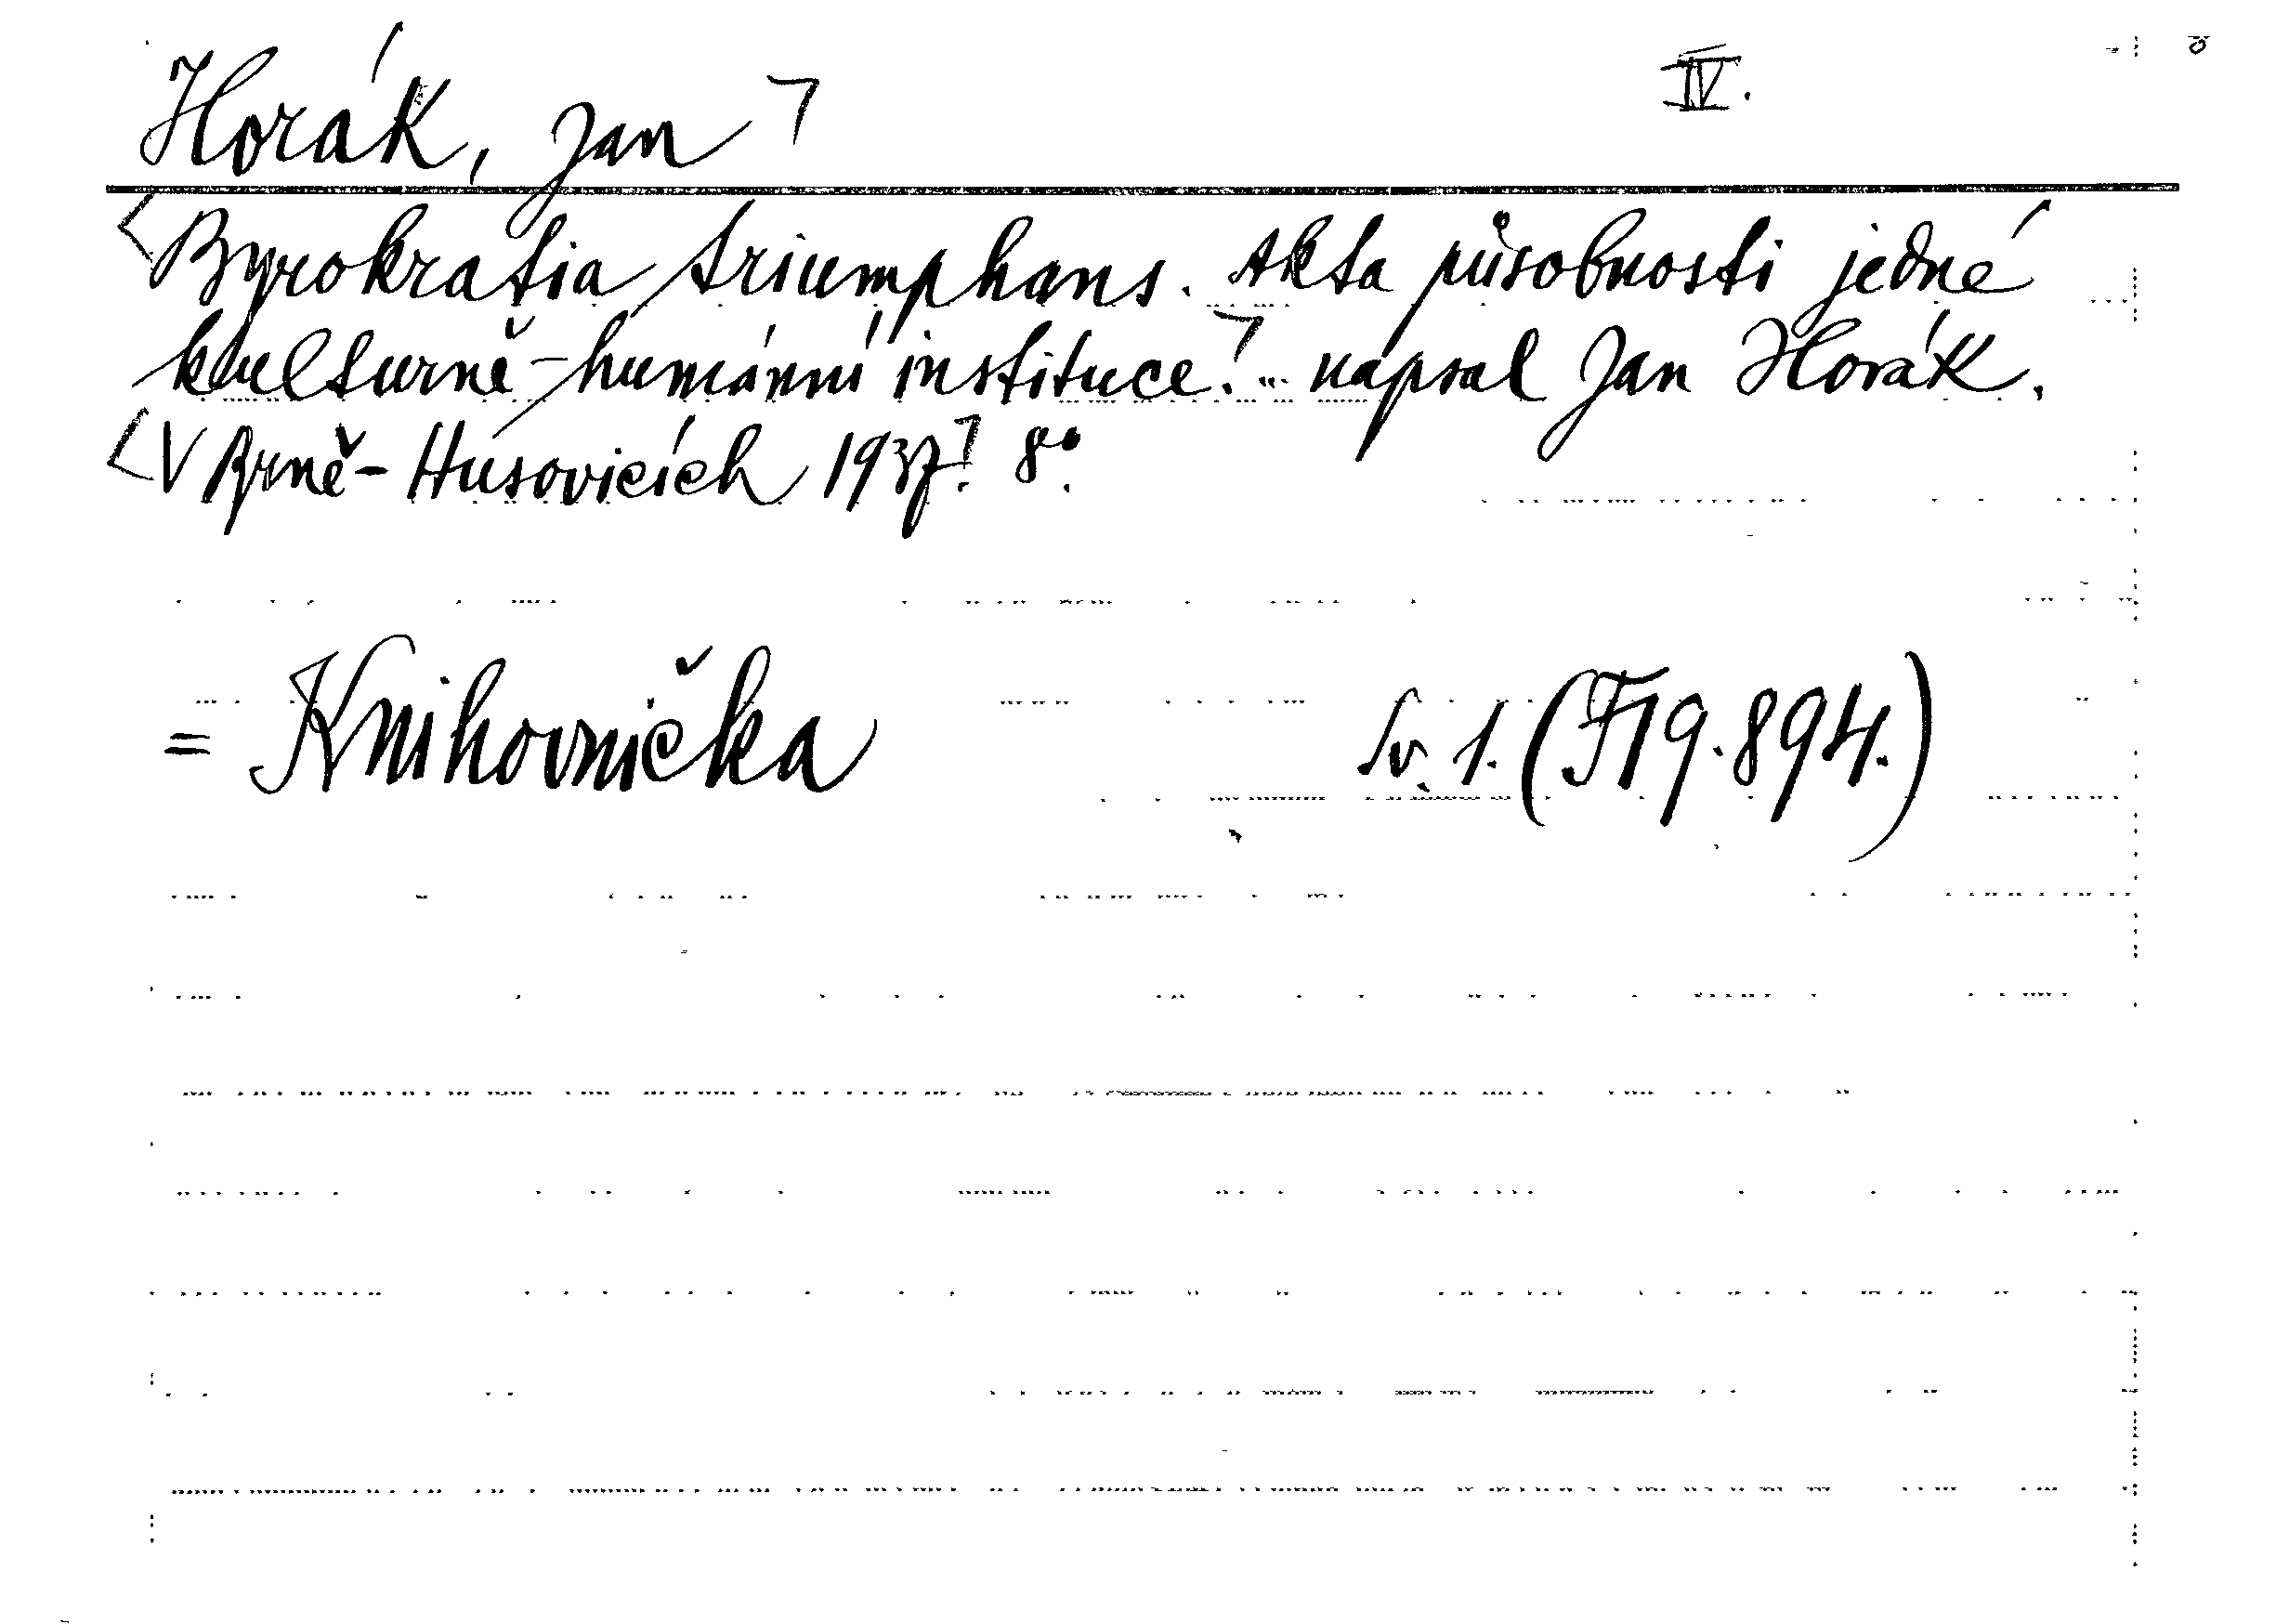 Horák, Jan ⌉ IV.
<Byrokratia triumphans. Akta působnosti jedné
kulturně-humánní instituce.⌉ .. napsal Jan Horák.
<V Brně-Husovicích 1937.⌉ 8°.
= Knihovnička Sv. 1. (F19.894.)